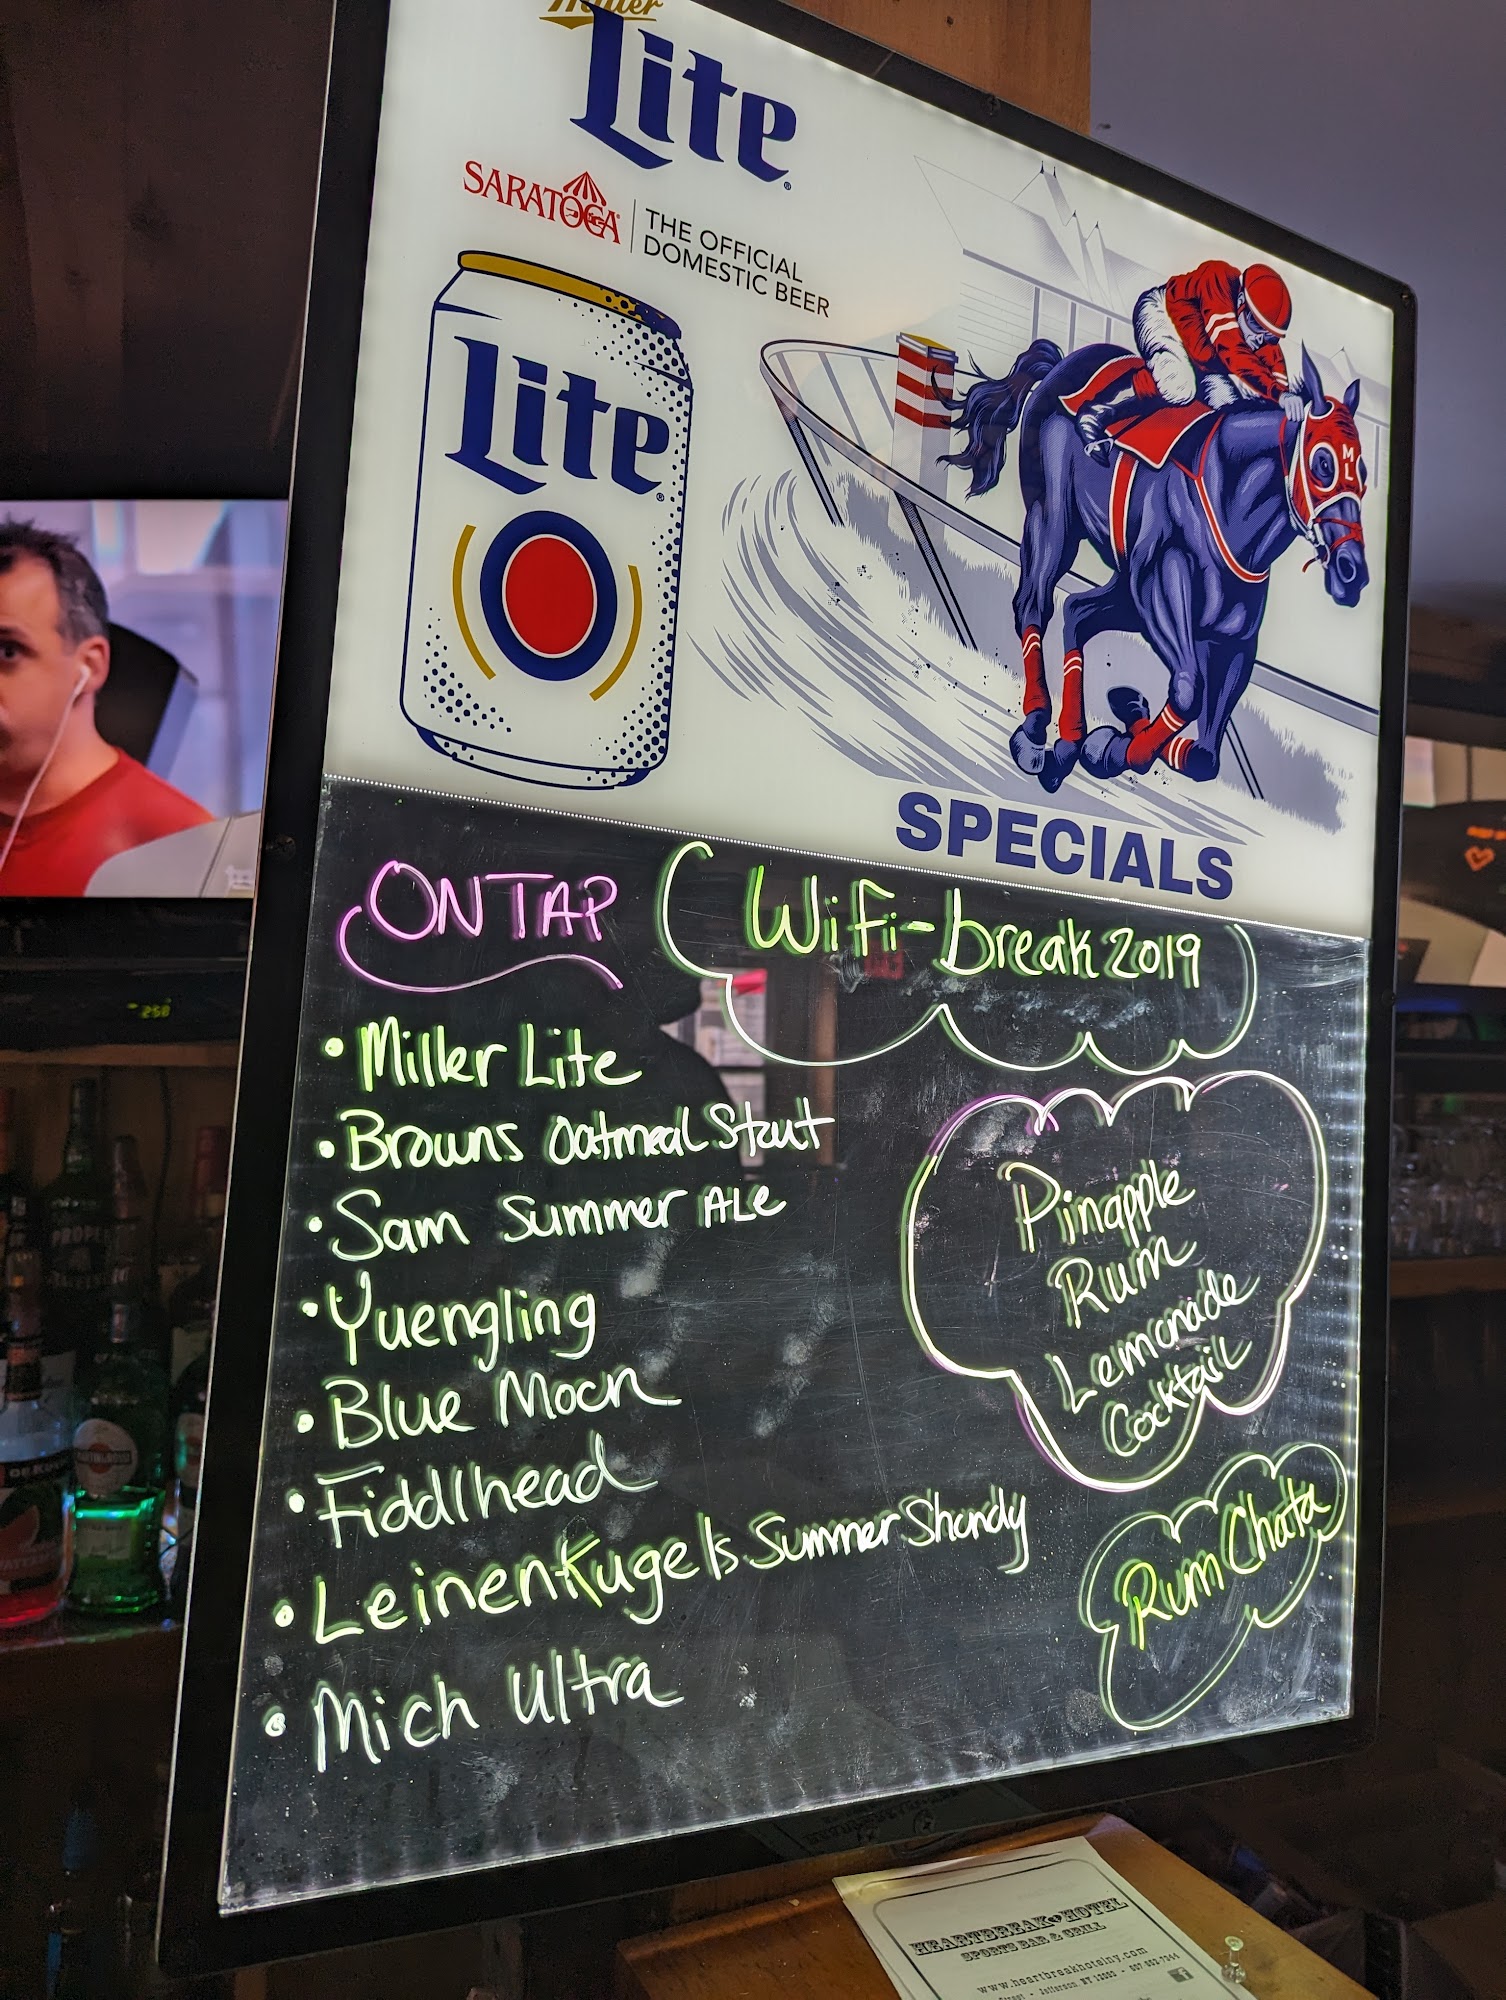 Miller
Lite
SARATOGA
THE OFFICIAL
DOMESTIC BEER
Lite
ML
SPECIALS
ON TAP
WiiFii-break2019
• Miller Lite
• Browns Oatmeal Stout
• Sam Summer ALe
• Yuengling
• Blue Moon
• Fiddlhead
• Leinenkugels Summer Shandy
• Mich Ultra
Piinapple
Rum
Lemonade
Cocktail
Rum Chata
HEARTBREAK HOTEL
SPORTS BAR & GRILL
www.heartbreakhotelny.com